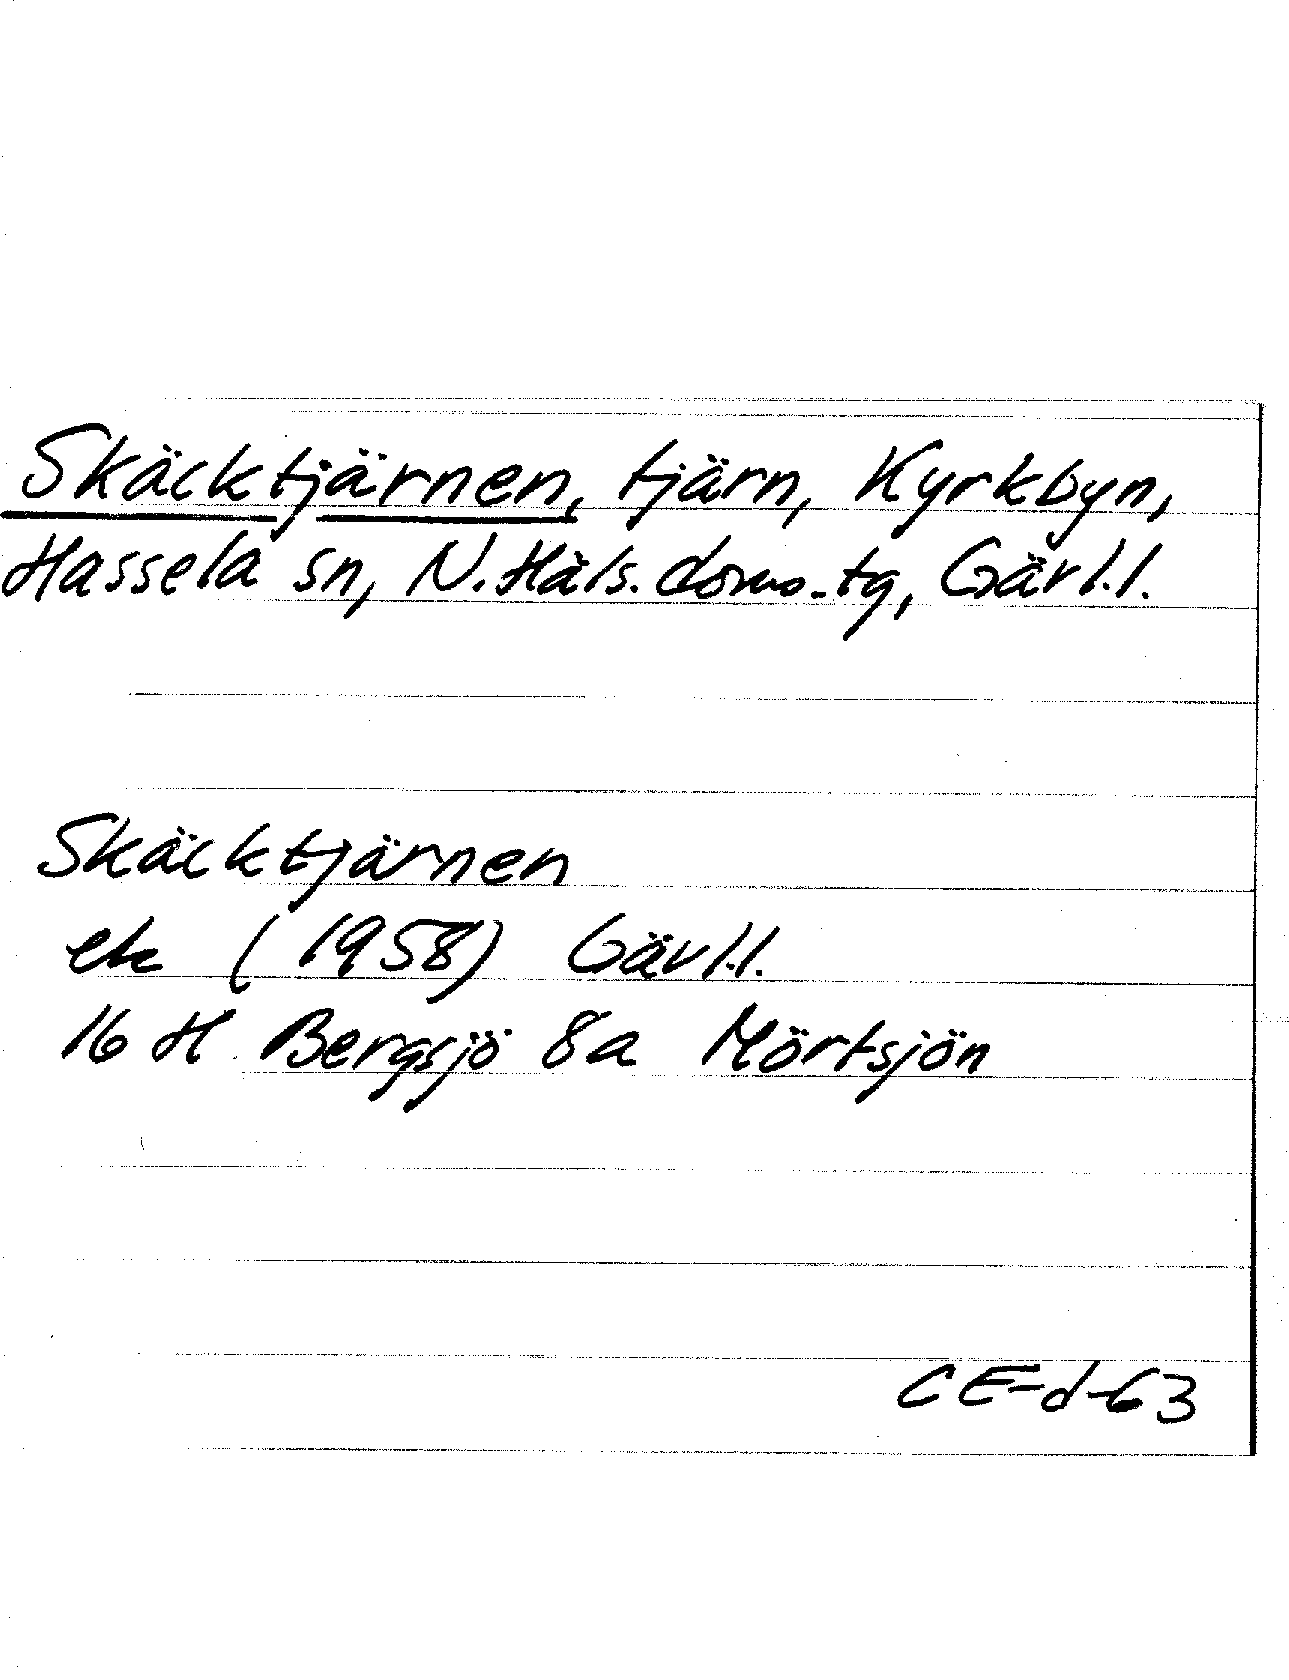 Skäcktjärnen, tjärn, Kyrkbyn,
Hassela sn, N. Häls. doms.tg, Gävl.l.
Skäcktjärnen
ek (1958) Gävl.l.
16 H Bergsjö 8a Mörtsjön
CE-d-63